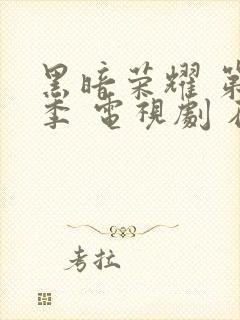 黑暗荣耀 第
季 電視劇
考拉